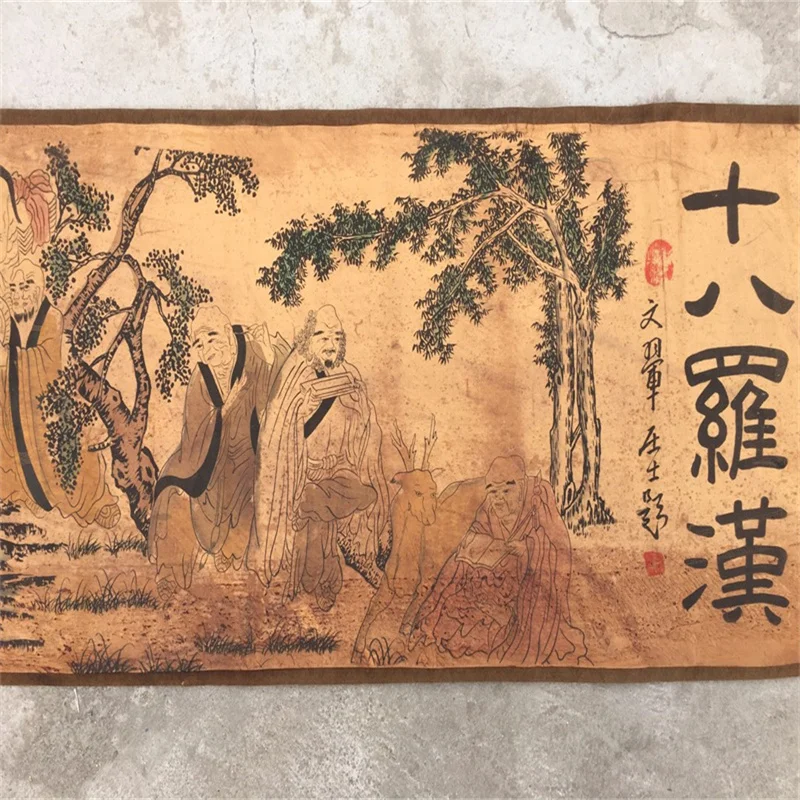 十八羅漢
文翬居士題